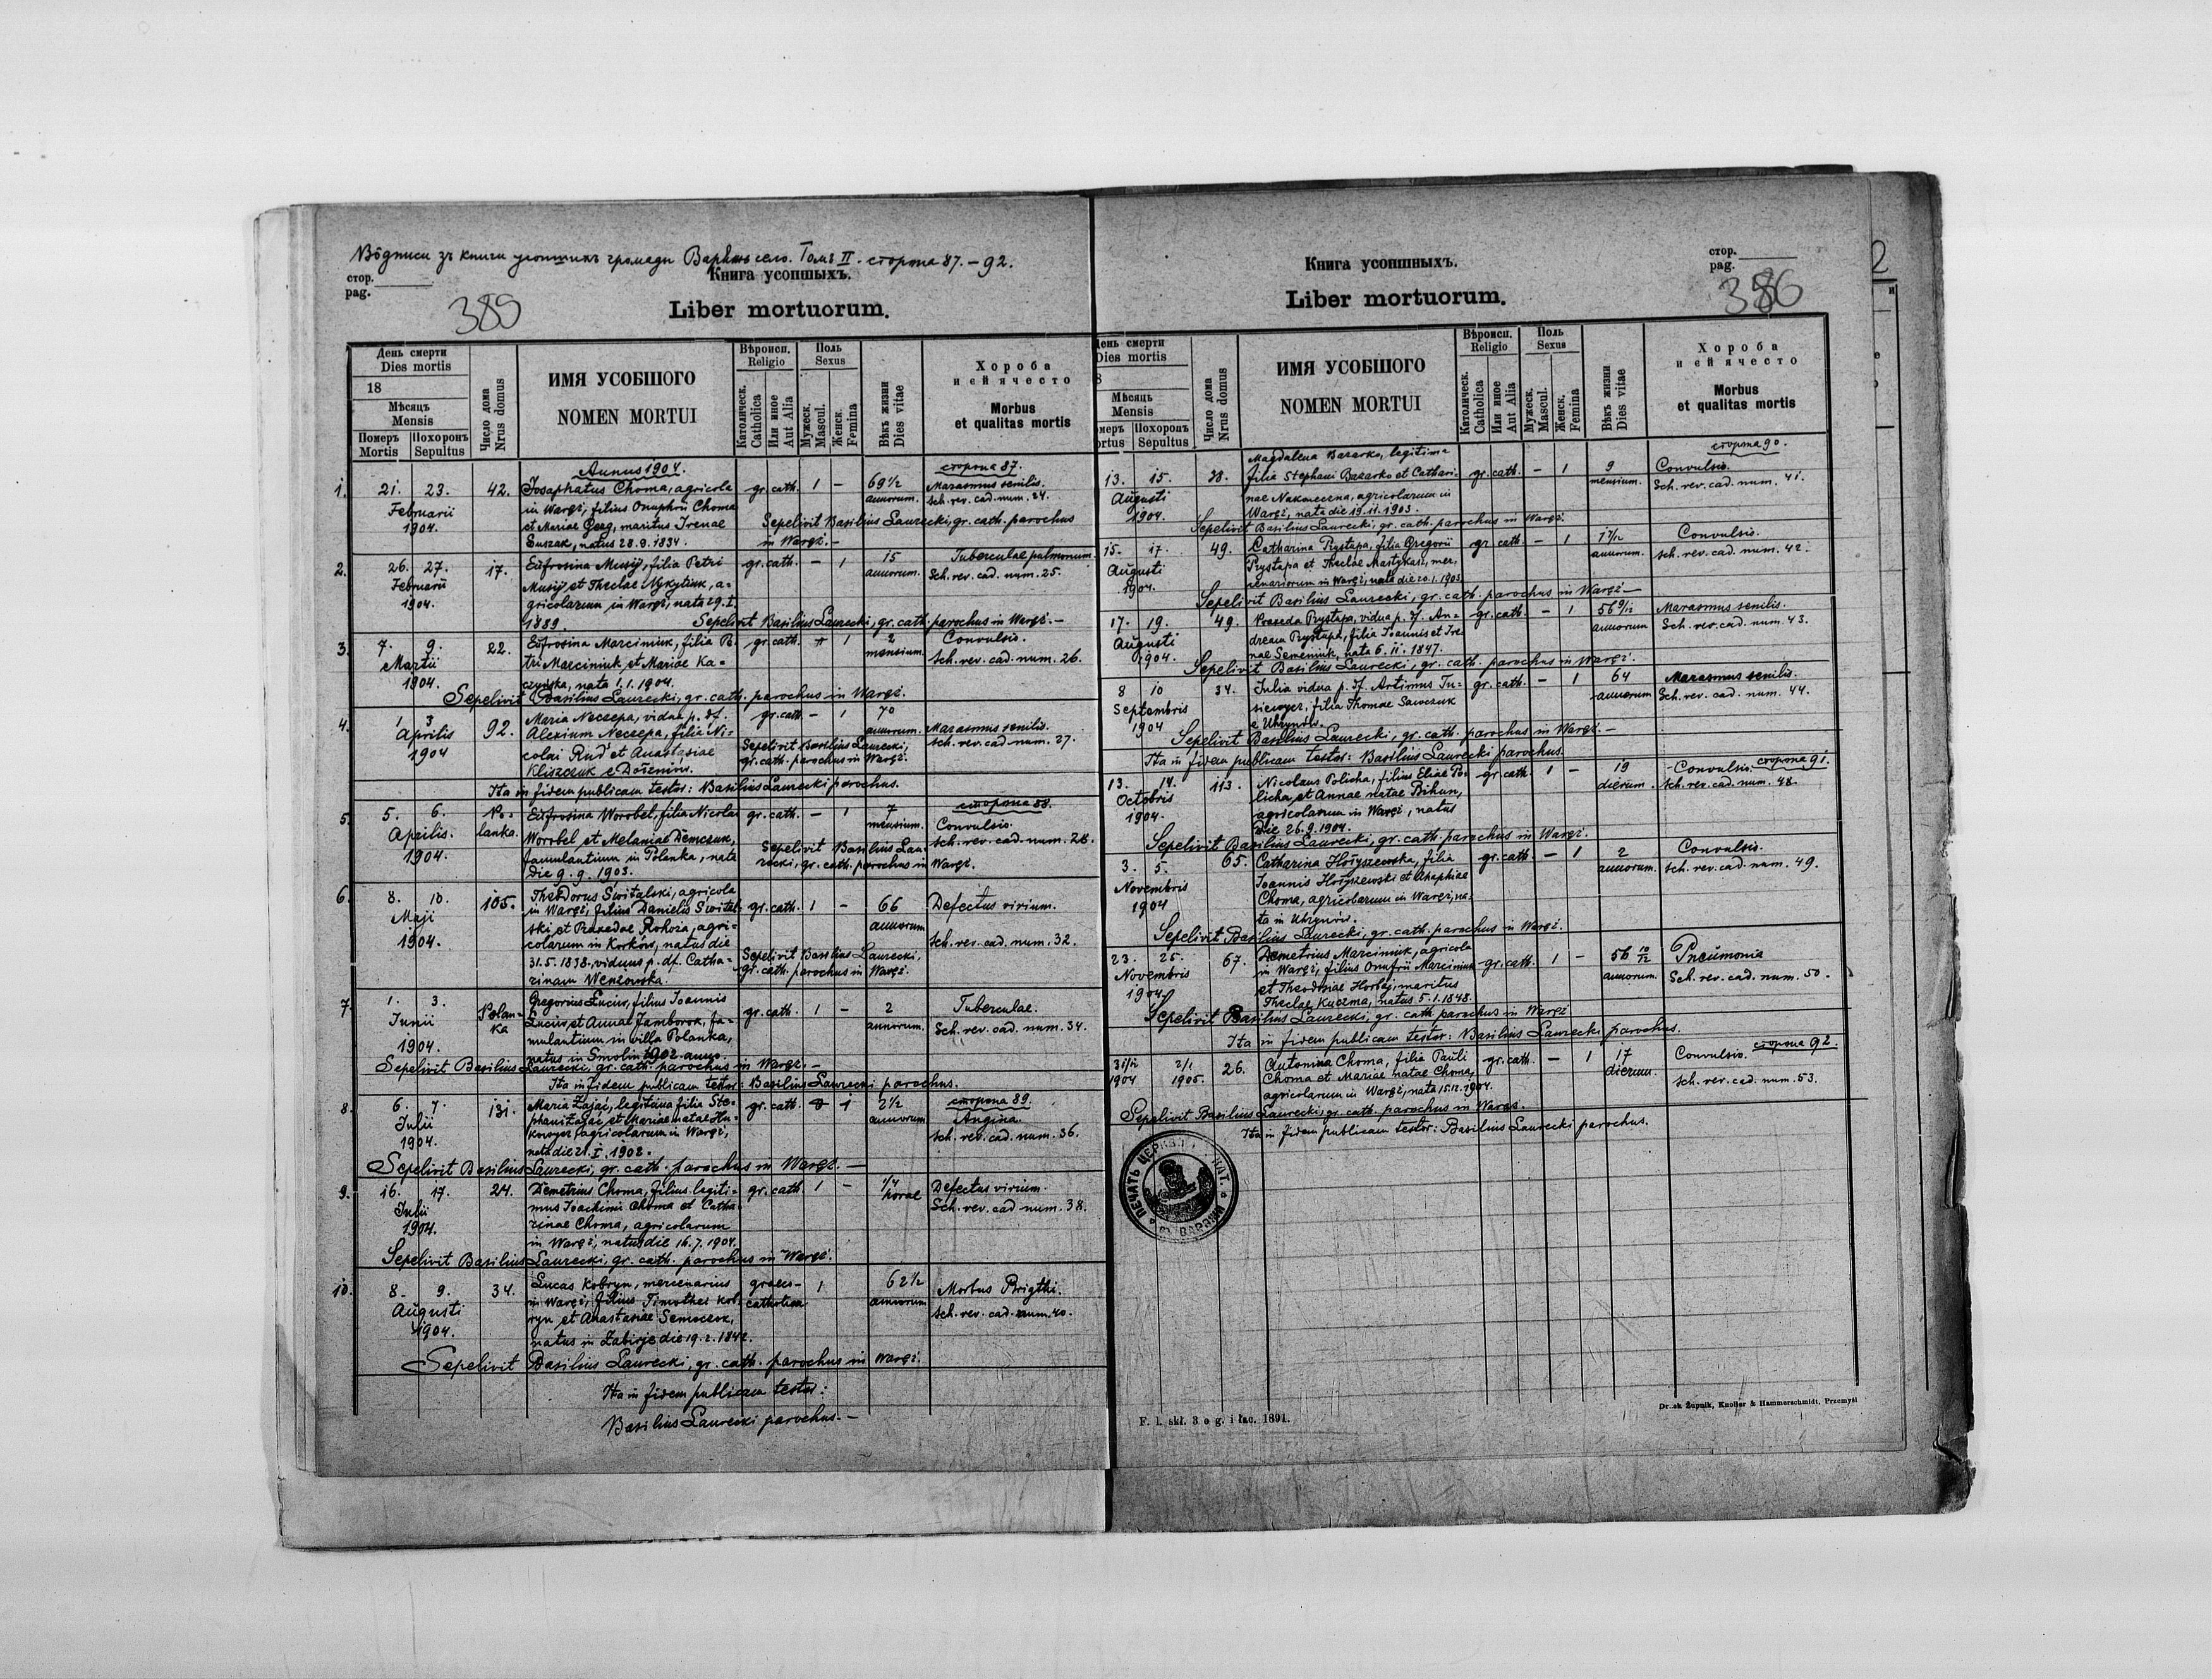 Вôдписи зъ книги усопшихъ громады Варяжъ село. Томъ II. сторона 87.-92.
стор.
pag.
389
Книга усопшыхъ.
Liber mortuorum.
День смерти
Dies mortis
18
Мѣсяцъ
Mensis
Померъ Похоронъ
Mortis Sepultus
Число дома
Nrus domus
ИМЯ УСОБШОГО
NOMEN MORTUI
Вѣроисп.
Religio
Католическ.
Catholica
Или иное
Aut Alia
Поль
Sexus
Мужеск.
Mascul.
Женск.
Femina
Вѣкъ жизни
Dies vitae
Хороба
и ей ячесто
Morbus
et qualitas mortis
Annus 1904. сторона 87.
1. 21. 23. 42. Josaphatus Choma, agricola gr. cath. 1 - 69 1/2 Marasmus senilis.
Februarii in Waręż, filius Onuphrii Choma annorum. Sch. rev. cad. num. 24.
1904. et Mariae Geog, maritus Irenae Sepelivit Basilius Laurecki, gr. cath. parochus
Suszak, natus 28.9.1834. in Waręż.-
2. 26. 27. 17. Eufrosina Musij, filia Petri gr. cath. - 1 15 Tuberculae pulmonum.
Februarii Musij et Theclae Nykytiuk, a- annorum. Sch. rev. cad. num. 25.
1904. gricolarum in Waręż, nata 29.I.
1889. Sepelivit Basilius Laurecki, gr. cath. parochus in Waręż.-
3. 7. 9. 22. Eufrosina Marciniuk, filia Pe- gr. cath. 1 2 Convulsio.
Martii tri Marciniuk et Mariae Ka- mensium. Sch. rev. cad. num. 26.
1904. czyńska, nata 1.1.1904.
Sepelivit Basilius Laurecki, gr. cath. parochus in Waręż.
4. 1 3 92. Maria Neczepa, vidua p. df. gr. cath. - 1 70
Aprilis Alexium Neczepa, filia Ni- annorum. Marasmus senilis.
1904 colai Rud' et Anastasiae Sepelivit Basilius Laurecki, Sch. rev. cad. num. 27.
Kliszczuk e Dołżniów. gr. cath. parochus in Waręż.
Ita in fidem publicam testor: Basilius Laurecki parochus.
сторона 88.
5. 5. 6. Po- Eufrosina Worobel, filia Nicolai gr. cath. - 1 7
Aprilis. lanka. Worobel et Melaniae Demczuk, mensium. Convulsio.
1904. famulantium in Polanka, nata Sepelivit Basilius Lau- Sch. rev. cad. num. 28.
die 9.9.1903. recki, gr. cath. parochus in Waręż.
6. 8. 10. 105. Theodorus Switalski, agricola
Maji in Waręż, filius Danielis Switel- gr. cath. 1 - 66 Defectus virium.
1904. ski et Praxedae Rokosz, agri- annorum
colarum in Korków, natus die Sch. rev. cad. num. 32.
31.5.1838, viduus p. df. Catha- Sepelivit Basilius Laurecki,
rinam Wenzowska. gr. cath. parochus in Waręż.
7. 1. 3. Polan- Gregorius Łuciw, filius Ioannis gr. cath. 1 - 2 Tuberculae.
Iunii ka Łuciw et Annae Jamborok, fa- annorum. Sch. rev. cad. num. 34.
1904. mulantium in villa Polanka,
natus in Smolin 1902 anno.
Sepelivit Basilius Laurecki, gr. cath. parochus in Waręż.-
Ita in fidem publicam testor: Basilius Laurecki parochus.
8. 6. 7. 131. Maria Zając, legitima filia Ste- gr. cath. 1 2 1/2 сторона 89.
Iulii phani Zając et Mariae natae annorum Angina
1904. agricolarum in Waręż, Sch. rev. cad. num. 36.
nata die 21.I.1902.
Sepelivit Basilius Laurecki, gr. cath. parochus in Waręż.-
9. 16. 17. 24. Demetrius Choma, filius legiti- gr. cath. 1 - 1/4 Defectus virium.
Iulii mus Ioachimi Choma et Catha- horae Sch. rev. cad. num. 38.
1904. rinae Choma, agricolarum
in Waręż, natus die 16.7.1904.
Sepelivit Basilius Laurecki, gr. cath. parochus in Waręż.
10. 8. 9. 34. Lucas Kobryn, mercenarius graeco- 1 62 1/2 Morbus Brigthi.
Augusti in Waręż, filius Timothei Kob- catholica annorum Sch. rev. cad. num. 40.
1904. ryn et Anastasiae Semoczok,
natus in Zabirje die 19.2.1842.
Sepelivit Basilius Laurecki, gr. cath. parochus in Waręż.
Ita in fidem publicam testor:
Basilius Laurecki parochus.-
стор.
pag.
386
Книга усопшныхъ.
Liber mortuorum.
День смерти
Dies mortis
Мѣсяцъ
Mensis
Похоронъ
Sepultus
Число дома
Nrus domus
ИМЯ УСОБШОГО
NOMEN MORTUI
Вѣроисп.
Religio
Католическ.
Catholica
Или иное
Aut Alia
Поль
Sexus
Мужеск.
Mascul.
Женск.
Femina
Вѣкъ жизни
Dies vitae
Хороба
и ей ячесто
Morbus
et qualitas mortis
сторона 90.
Magdalena Bazarko, legitima
13. 15. 38. filia Stephani Bazarko et Cathari- gr. cath. - 1 9 Convulsio.
Augusti nae Nakoneczna, agricolarum in mensium. Sch. rev. cad. num. 41.
1904. Waręż, nata die 19.11.1903.
Sepelivit Basilius Laurecki, gr. cath. parochus in Waręż.
15. 17. 49. Catharina Prystapa, filia Gregorii gr cath. - 1 1 7/12 Convulsio.
Augusti Prystapa et Theclae Mastykasz, mer- annorum. Sch. rev. cad. num. 42.
1904. cenariorum in Waręż, nata die 20.1.1903
Sepelivit Basilius Laurecki, gr. cath. parochus in Waręż-
17. 19. 49. Praxeda Prystapa, vidua p. df. An- gr. cath. - 1 56 9/12 Marasmus senilis.
Augusti dream Prystapa, filia Ioannis et Ire- annorum Sch. rev. cad. num. 43.
1904. nae Semeniuk, nata 6.11.1847.
Sepelivit Basilius Laurecki, gr. cath. parochus in Waręż.
8 10 34. Iulia vidua p. df. Artimus Tu- gr. cath. - 1 64 Marasmus senilis.
Septembris filia Thomae Sawczuk annorum Sch. rev. cad. num. 44.
1904 e Uhrynów.
Sepelivit Basilius Laurecki, gr. cath. parochus in Waręż.-
Ita in fidem publicam testor: Basilius Laurecki parochus.
13. 14. 113. Nicolaus Policha, filius Eliae Po- gr. cath. 1 - 19 Convulsio. сторона 91.
Octobris licha et Annae natae Bihun, dierum. Sch. rev. cad. num. 48.
1904. agricolarum in Waręż, natus
die 26.9.1904.
Sepelivit Basilius Laurecki, gr. cath. parochus in Waręż.
3. 5. 65. Catharina Hołyszewska, filia gr. cath. - 1 2 Convulsio.
Novembris Ioannis Hołyszewski et Ahaphiae annorum. Sch. rev. cad. num. 49.
1904 Choma, agricolarum in Waręż, na-
ta in Uhrynów.
Sepelivit Basilius Laurecki, gr. cath. parochus in Waręż.
23. 25. 67. Demetrius Marciniuk, agricola
Novembris in Waręż, filius Onufrii Marciniuk gr. cath. 1 - 56 10/12 Pneumonia
1904. et Theodosiae Horbaj, maritus annorum. Sch. rev. cad. num. 50.
Theclae Kuczma, natus 5.1.1848.
Sepelivit Basilius Laurecki, gr. cath. parochus in Waręż
Ita in fidem publicam testor: Basilius Laurecki parochus.
сторона 92.
31/12 2/1 26. Antonina Choma, filia Pauli gr. cath. - 1 17 Convulsio.
1904 1905. Choma et Mariae natae Choma, dierum. Sch. rev. cad. num. 53.
agricolarum in Waręż, nata 15.12.1904.
Sepelivit Basilius Laurecki, gr. cath. parochus in Waręż.
Ita in fidem publicam testor: Basilius Laurecki parochus.
ПЕЧАТЬ ЦЕРКВ. КАТ.
F. l. skł. 3 o g. i łac. 1891.
Żupnik, Knoller & Hammerschmidt, Przemyśl
2